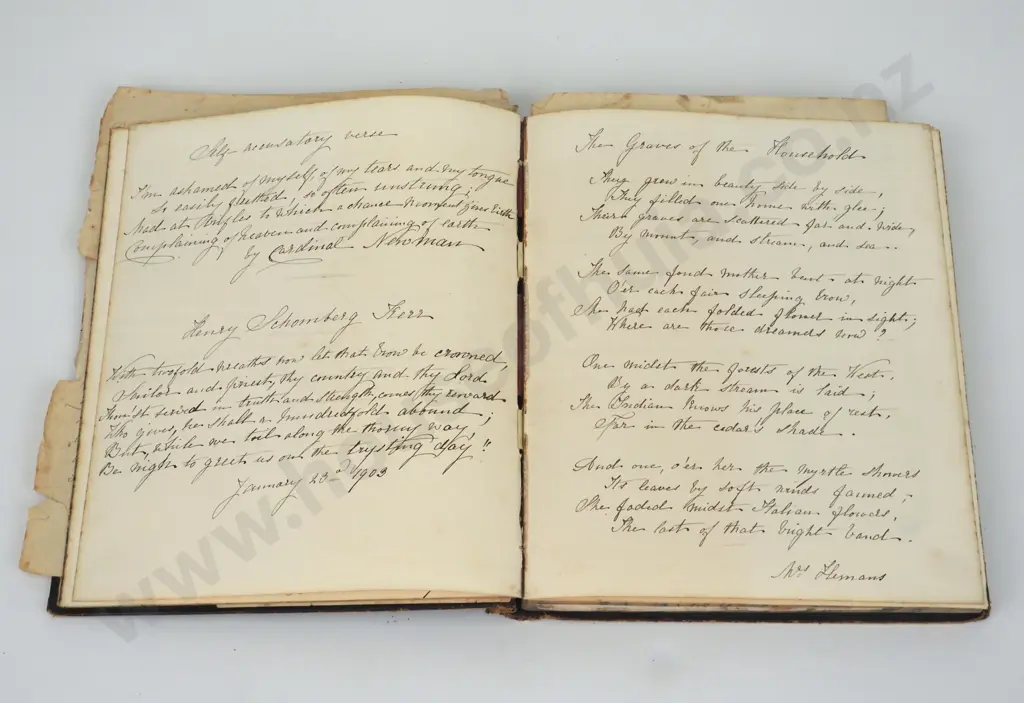 Self accusatory verse
I'm ashamed of myself, of my tears and my tongue
So easily fretted, so often unstrung;
Mad at trifles to which a chance moment gives birth
Complaining of heaven and complaining of earth
by Cardinal Newman
Henry Schomberg Kerr
With twofold wreaths now let that brow be crowned,
Sailor and priest, thy country and thy Lord
Thou'st served in truth and strength, comes thy reward
Who gives, he shall a hundredfold abound;
But, while we toil along the thorny way,
Be nigh to greet us on the trysting day!!
January 23rd 1903
The Graves of the Household
They grew in beauty side by side,
They filled one home with glee;
Their graves are scattered far and wide,
By mount, and stream, and sea.
The same fond mother bent at night
O'er each fair sleeping brow,
She had each folded flower in sight;
Where are those dreamers now?
One midst the forests of the West,
By a dark stream is laid;
The Indian knows his place of rest,
Far in the cedar's shade.
And one, o'er her the myrtle showers
Its leaves by soft winds fanned;
She faded midst Italian flowers,
The last of that bright band.
Mrs Hemans